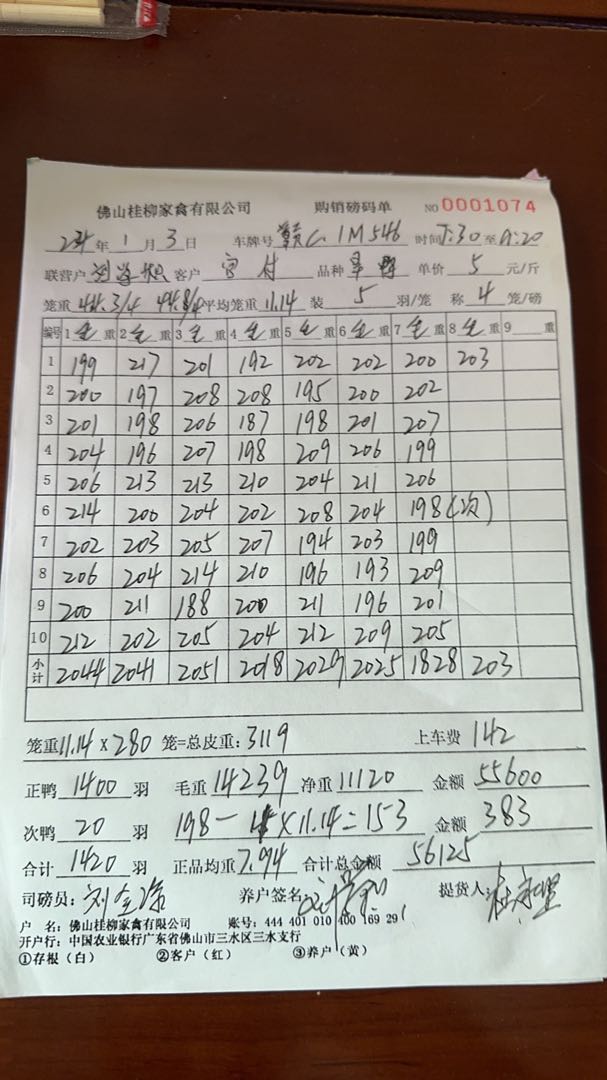 佛山桂柳家禽有限公司 购销磅码单 NO 0001074
年 1 月 3 日 车牌号 赣C 1M546 时间 :30 至 :20
联营户 客户 宫付 品种 单价 5 元/斤
笼重 44.3/4 44.8/4 平均笼重 11.14 装 5 羽/笼 称 4 笼/磅
编号 1 毛 重 2 毛 重 3 毛 重 4 毛 重 5 毛 重 6 毛 重 7 毛 重 8 毛 重 9 重
1 199 217 201 192 202 202 200 203
2 200 197 208 208 195 200 202
3 201 198 206 187 198 201 207
4 204 196 207 198 209 206 199
5 206 213 213 210 204 211 206
6 214 200 204 202 208 204 198(次)
7 202 203 205 207 194 203 199
8 206 204 214 210 196 193 209
9 200 211 188 200 211 196 201
10 212 202 205 204 212 209 205
小计 2044 2041 2051 2018 2029 2025 1828 203
笼重 11.14 × 280 笼=总皮重: 3119 上车费 142
正鸭 1400 羽 毛重 14239 净重 11120 金额 55600
次鸭 20 羽 198 - 4 × 11.14 = 153 金额 383
合计 1420 羽 正品均重 7.94 合计总金额 56125
司磅员: 刘 养户签名: 提货人:
户 名: 佛山桂柳家禽有限公司 账号: 444 401 010 400 169 29
开户行: 中国农业银行广东省佛山市三水区三水支行
①存根(白) ②客户(红) ③养户(黄)